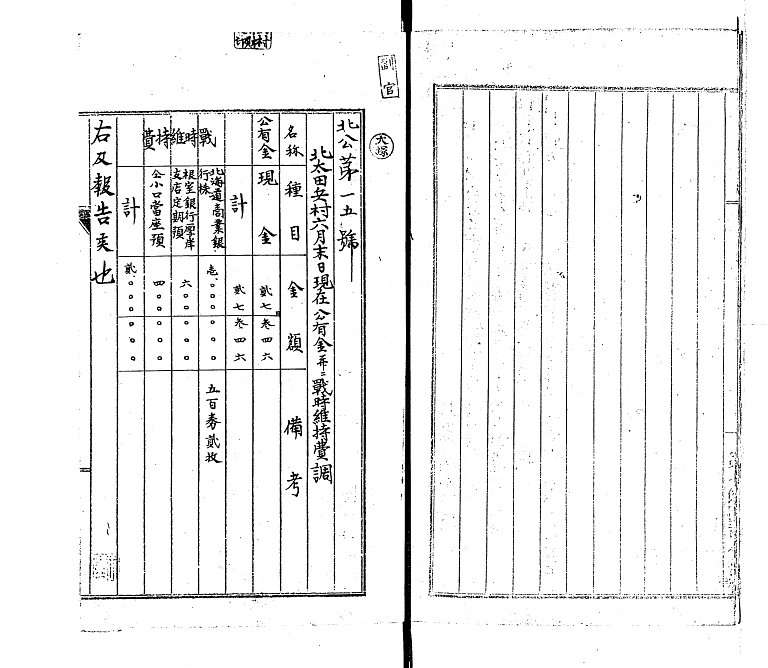 副官
大塚
北公第一五號
北太田兵村六月末日現在公有金並ニ戰時維持費調
名称 種目 金額 備考
公有金 現金 貳七叁四六
計 貳七叁四六
戰時維持費 北海道商業銀行株 壱、〇〇〇〇〇〇 五百券貳枚
根室銀行厚岸支店定期預 六〇〇〇〇〇
仝小口當座預 四〇〇〇〇〇
計 貳、〇〇〇〇〇〇
右及報告候也